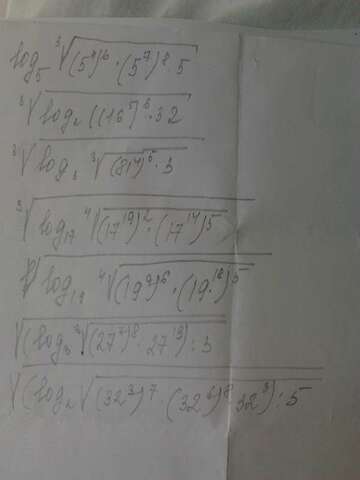 log₅ ³√(5⁴)⁶·(5⁷)⁸·5
³√log₂((16⁵)⁶·32
³√log₃ ³√(81⁴)⁶·3
³√log₁₇ ⁴√(17¹⁹)²·(17¹⁴)5
√log₁₉ ⁴√(19⁹)⁶·(19¹⁸)⁵
√(log₃ √(27⁷)⁸·27¹³):3
√(log₂√(32³)⁷·(32⁶)⁸·32³):5